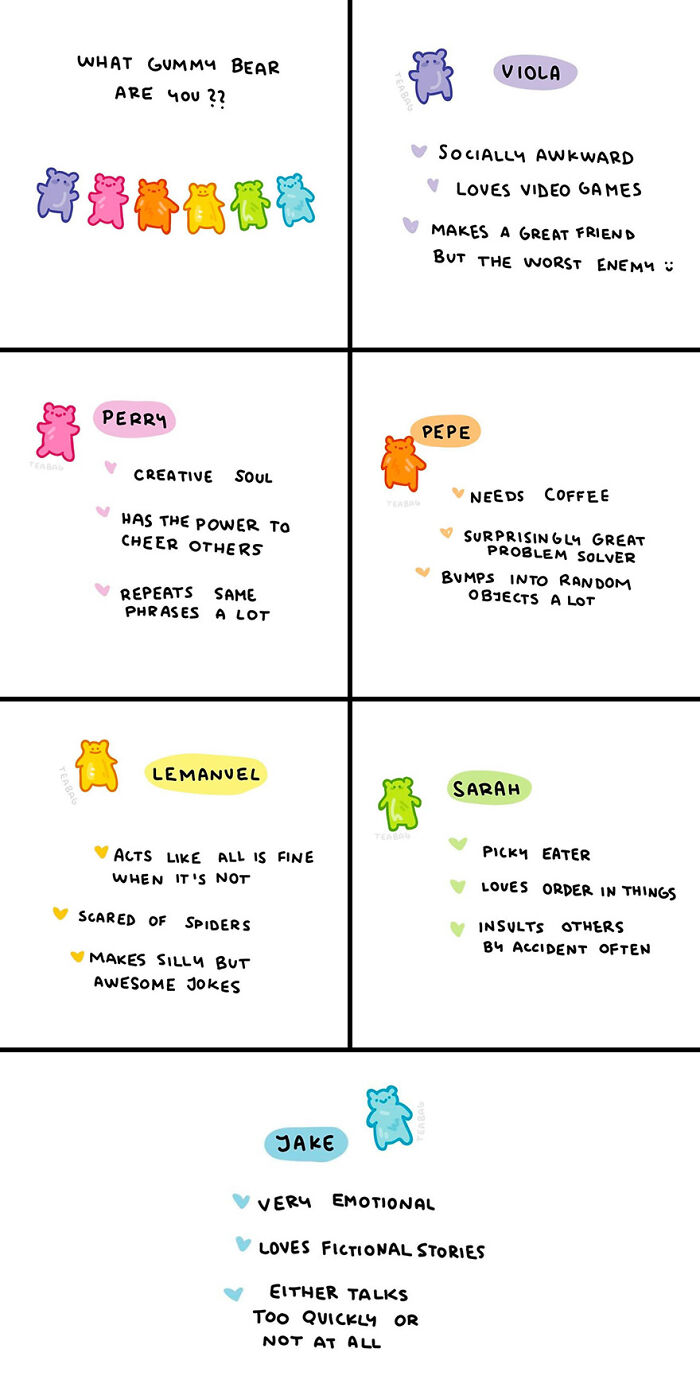 WHAT GUMMY BEAR
ARE YOU??
VIOLA
TEABAG
SOCIALLY AWKWARD
LOVES VIDEO GAMES
MAKES A GREAT FRIEND
BUT THE WORST ENEMY :)
PERRY
TEABAG
CREATIVE SOUL
HAS THE POWER TO
CHEER OTHERS
REPEATS SAME
PHRASES A LOT
PEPE
TEABAG
NEEDS COFFEE
SURPRISINGLY GREAT
PROBLEM SOLVER
BUMPS INTO RANDOM
OBJECTS A LOT
LEMANUEL
TEABAG
ACTS LIKE ALL IS FINE
WHEN IT'S NOT
SCARED OF SPIDERS
MAKES SILLY BUT
AWESOME JOKES
SARAH
TEABAG
PICKY EATER
LOVES ORDER IN THINGS
INSULTS OTHERS
BY ACCIDENT OFTEN
JAKE
TEABAG
VERY EMOTIONAL
LOVES FICTIONAL STORIES
EITHER TALKS
TOO QUICKLY OR
NOT AT ALL